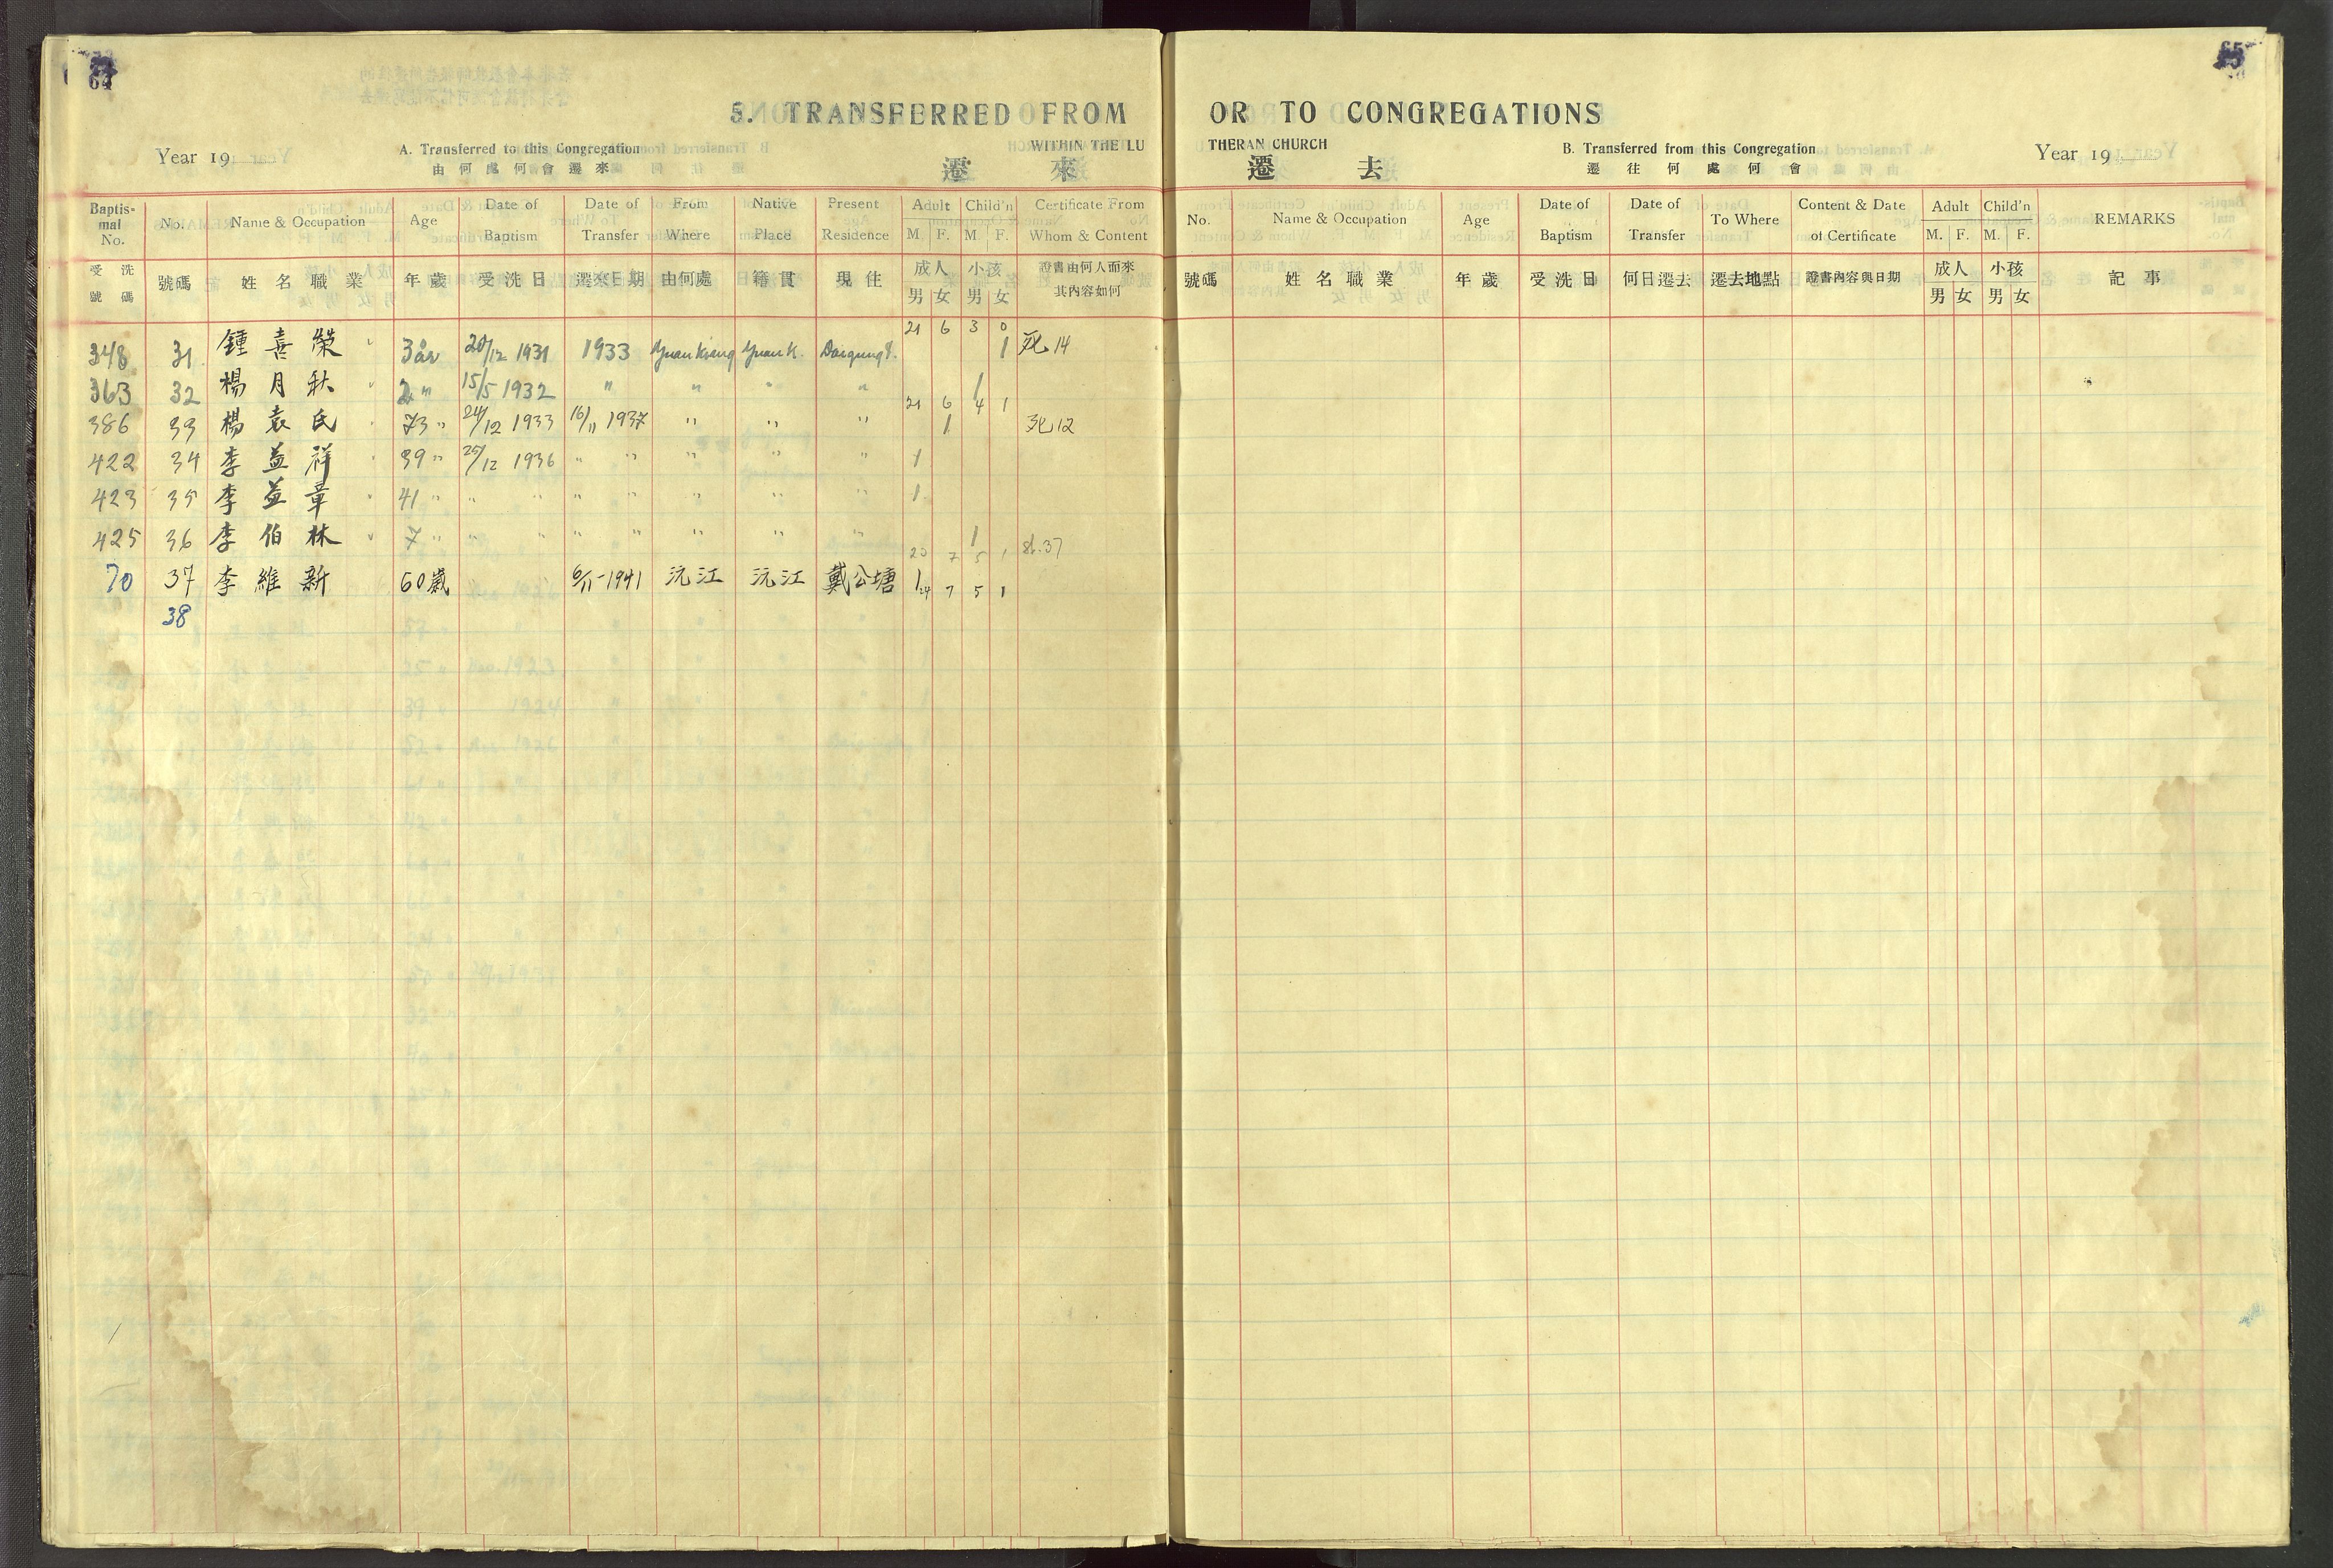 64
65
5. TRANSFERRED FROM OR TO CONGREGATIONS
WITHIN THE LUTHERAN CHURCH
Year 19
A. Transferred to this Congregation
由何處何會遷來
遷來
遷去
B. Transferred from this Congregation
遷往何處何會
Year 19
Baptismal No. No. Name & Occupation Age Date of Baptism Date of Transfer From Where Native Place Present Residence Adult M. F. Child'n M. F. Certificate From Whom & Content
受洗號碼 號碼 姓名職業 年歲 受洗日 遷來日期 由何處 籍貫 現住 成人 男 女 小孩 男 女 證書由何人而來其內容如何
No. Name & Occupation Age Date of Baptism Date of Transfer To Where Content & Date of Certificate Adult M. F. Child'n M. F. REMARKS
號碼 姓名職業 年歲 受洗日 何日遷去 遷去地點 證書內容與日期 成人 男 女 小孩 男 女 記事
21 6 3 0
348 31 鍾喜榮 " 3 år 20/12 1931 1933 Yuan Kiang Yuan K. 1 死 14
363 32 楊月秋 " 2 " 15/5 1932 " " " " 1
21 6 4 1
386 33 楊袁氏 " 73 " 24/12 1933 16/11 1937 " " " 1 死 12
422 34 李益祥 " 39 " 25/12 1936 " " " " " 1
423 35 李益章 " 41 " " " " " " " " 1
425 36 李伯林 " 7 " " " " " " " " 1
23 7 5 1
70 37 李維新 60歲 6/11-1941 沅江 沅江 戴公塘 1
24 7 5 1
38